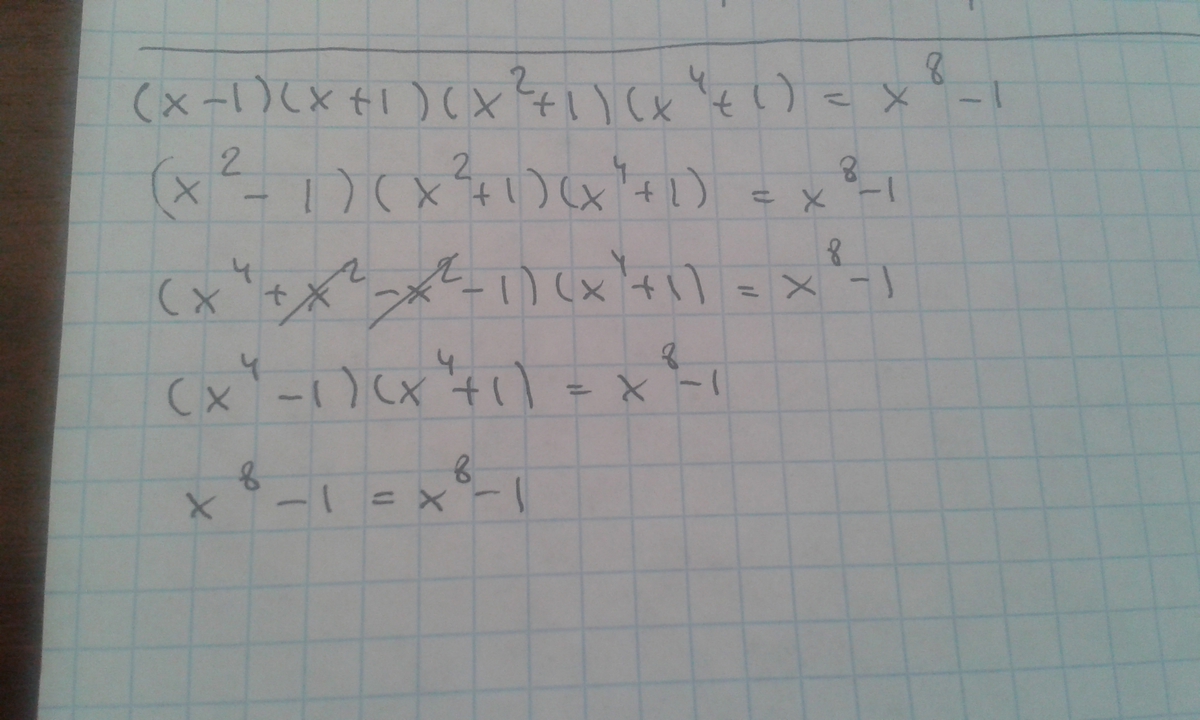 (x-1)(x+1)(x²+1)(x⁴+1) = x⁸-1
(x²-1)(x²+1)(x⁴+1) = x⁸-1
(x⁴+x²-x²-1)(x⁴+1) = x⁸-1
(x⁴-1)(x⁴+1) = x⁸-1
x⁸-1 = x⁸-1